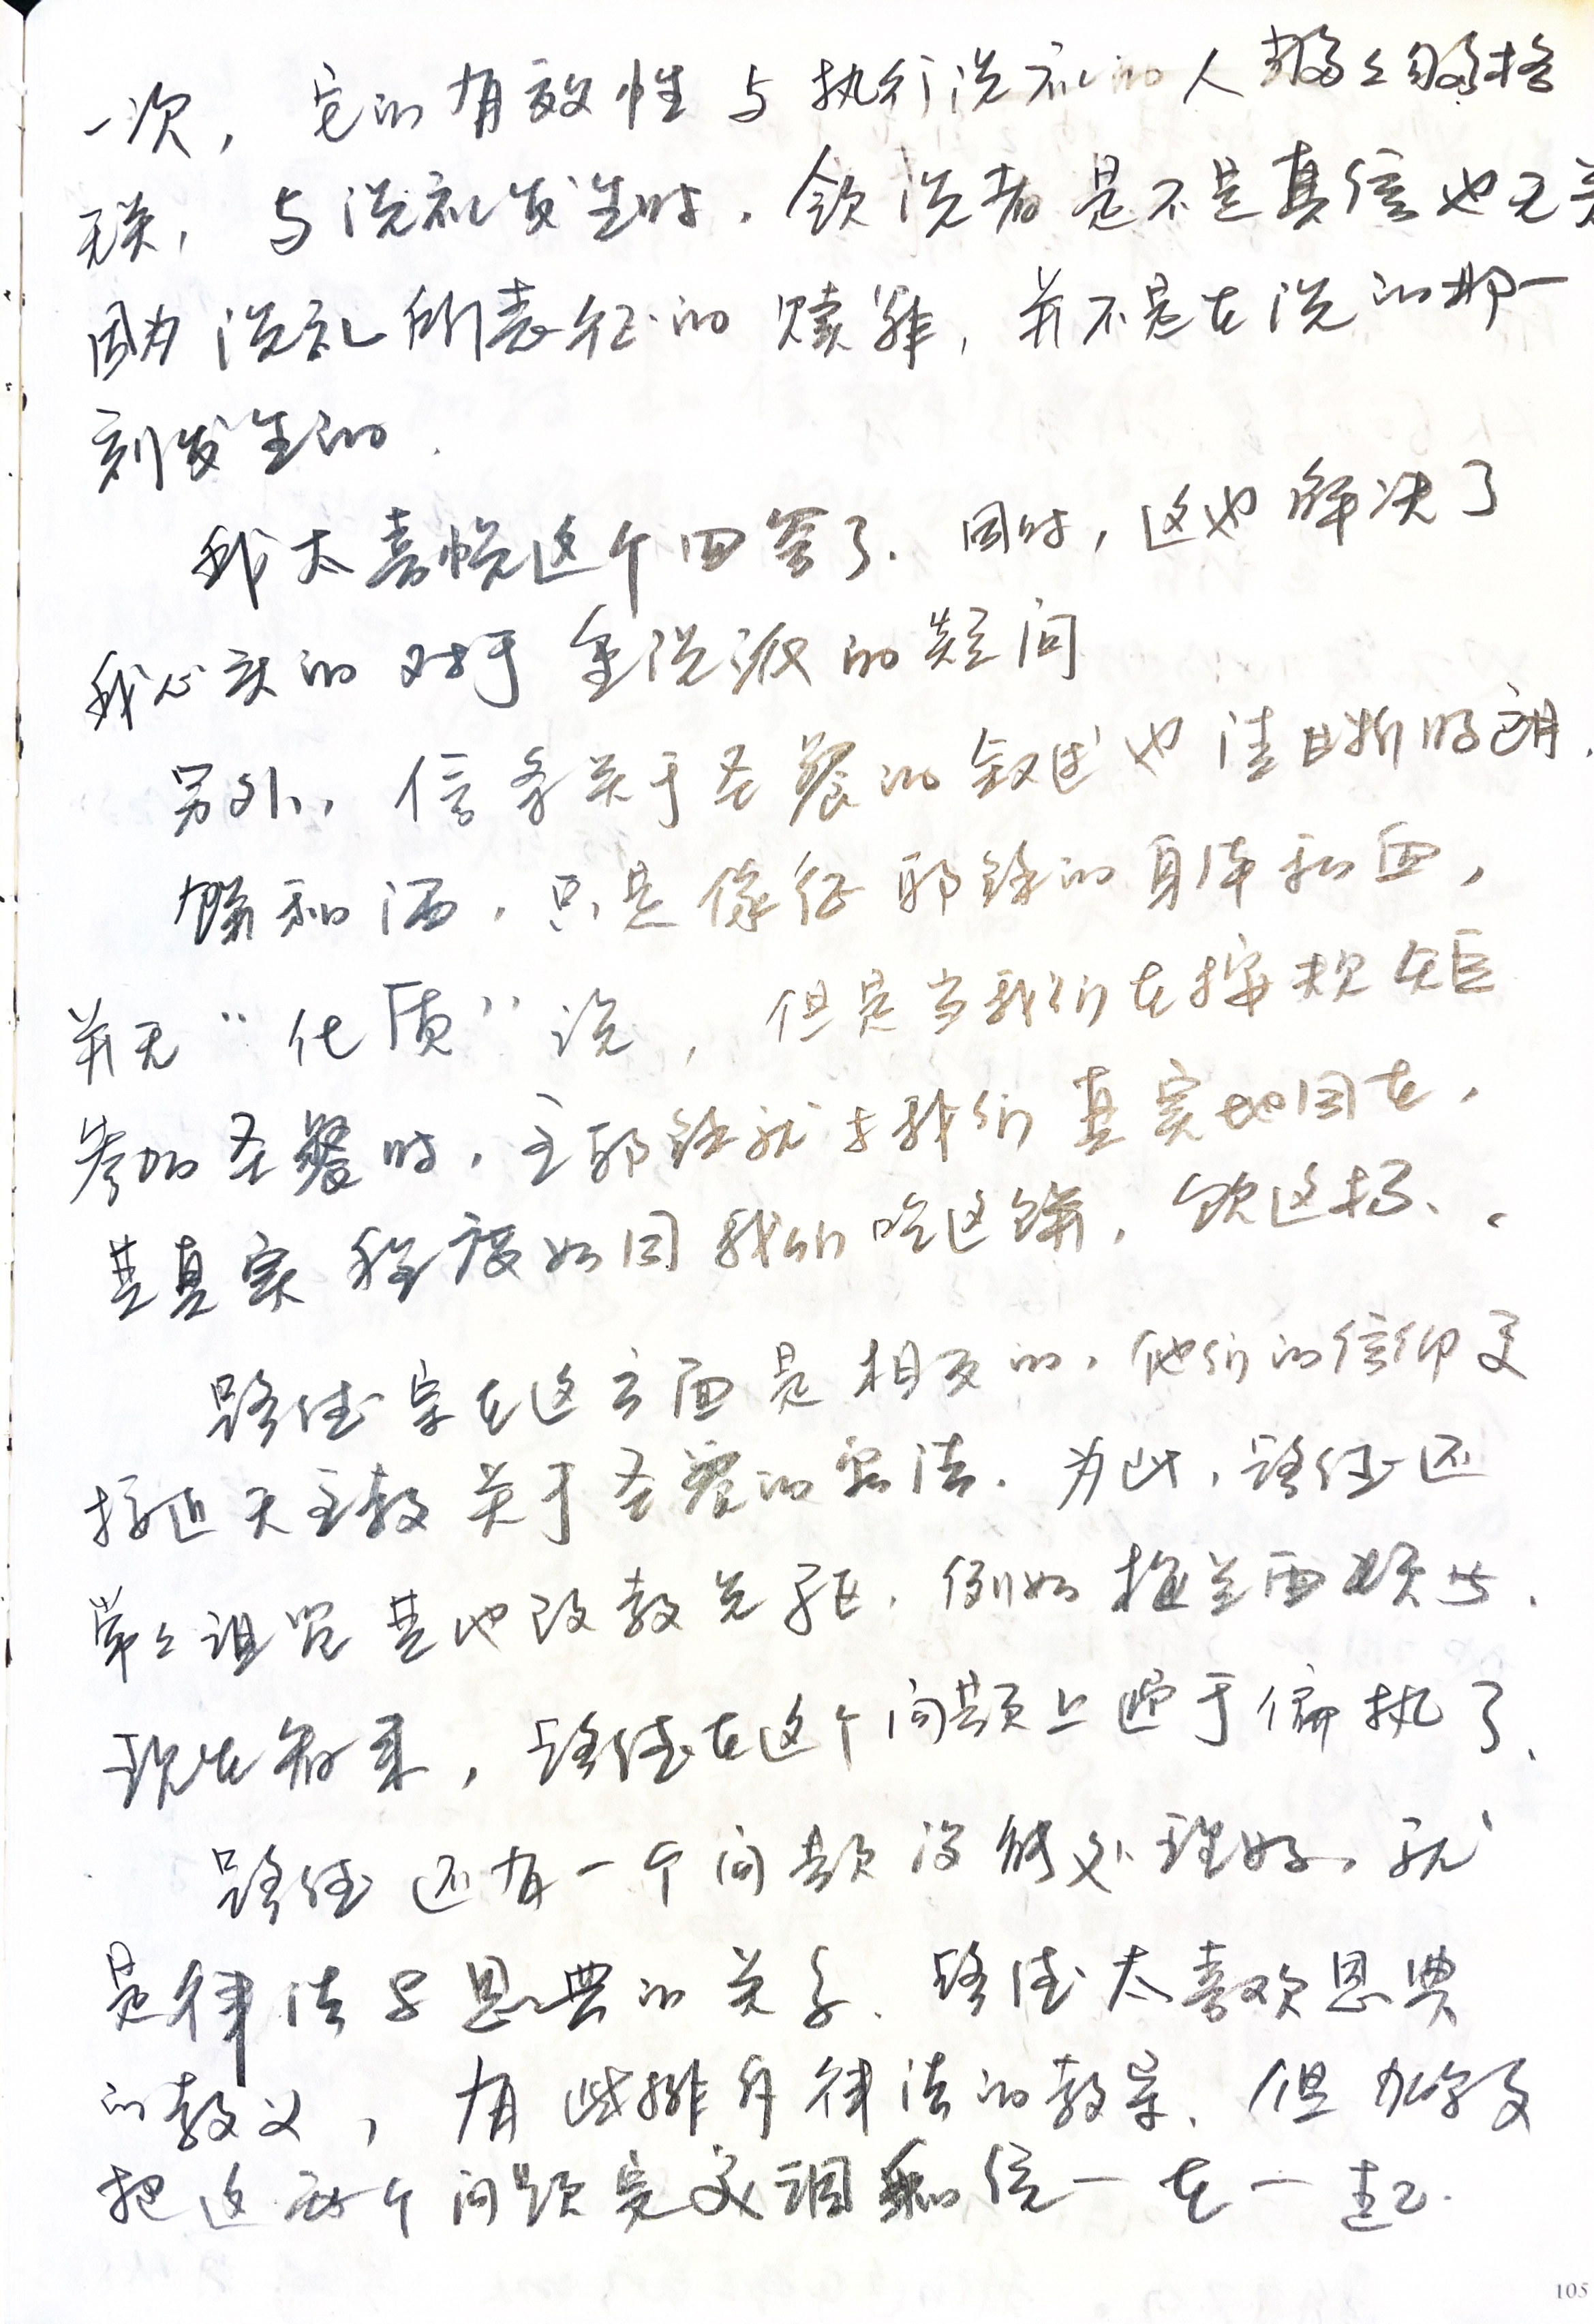 一次，它的有效性与执行洗礼的人够不够格
无关，与洗礼发生时，领洗者是不是真信也无关
因为洗礼所表征的赎罪，并不是在洗的那一
刻发生的．
我太喜悦这个回答了．同时，这也解决了
我心头的对于重洗派的疑问
另外，信条关于圣餐的叙述也清晰明朗．
饼和酒，只是象征耶稣的身体和血，
并无“化质”说，但是当我们在按规矩
参加圣餐时，主耶稣就与我们真实地同在，
其真实程度如同我们吃这饼，饮这杯．
路德宗在这方面是相反的，他们的信仰更
接近天主教关于圣餐的看法．为此，路德还
常常诅咒其他改教先驱，例如梅兰西顿等．
现在看来，路德在这个问题上过于偏执了．
路德还有一个问题没能处理好，就
是律法与恩典的关系．路德太喜欢恩典
的教义，有些排斥律法的教导．但加尔文
把这两个问题完美调和统一在一起．
105